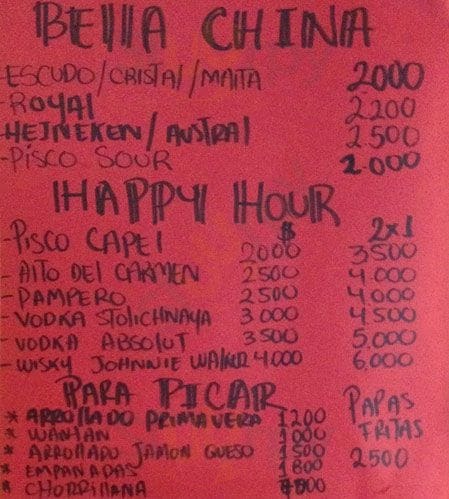 BEllA CHINA
-ESCUDO/CRISTAL/MALTA 2000
-ROYAL 2200
-HEJNEKEN/AUSTRAL 2500
-PISCO SOUR 2.000
HAPPY HOUR
$ 2x1
-PISCO CAPEL 2000 3500
-ALTO DEL CARMEN 2500 4.000
-DAMPERO 2500 4000
-VODKA STOLICHNAYA 3000 4500
-VODKA ABSOLUT 3500 5.000
-WISKY JOHNNIE WALKER 4.000 6,000
PARA PICAR
* ARROLLADO PRIMAVERA 1200
* WANTAN 1000
* ARROLLADO JAMON QUESO 1500
* EMPANADAS 1800
* CHORRILLANA
PAPAS
FRITAS
2500